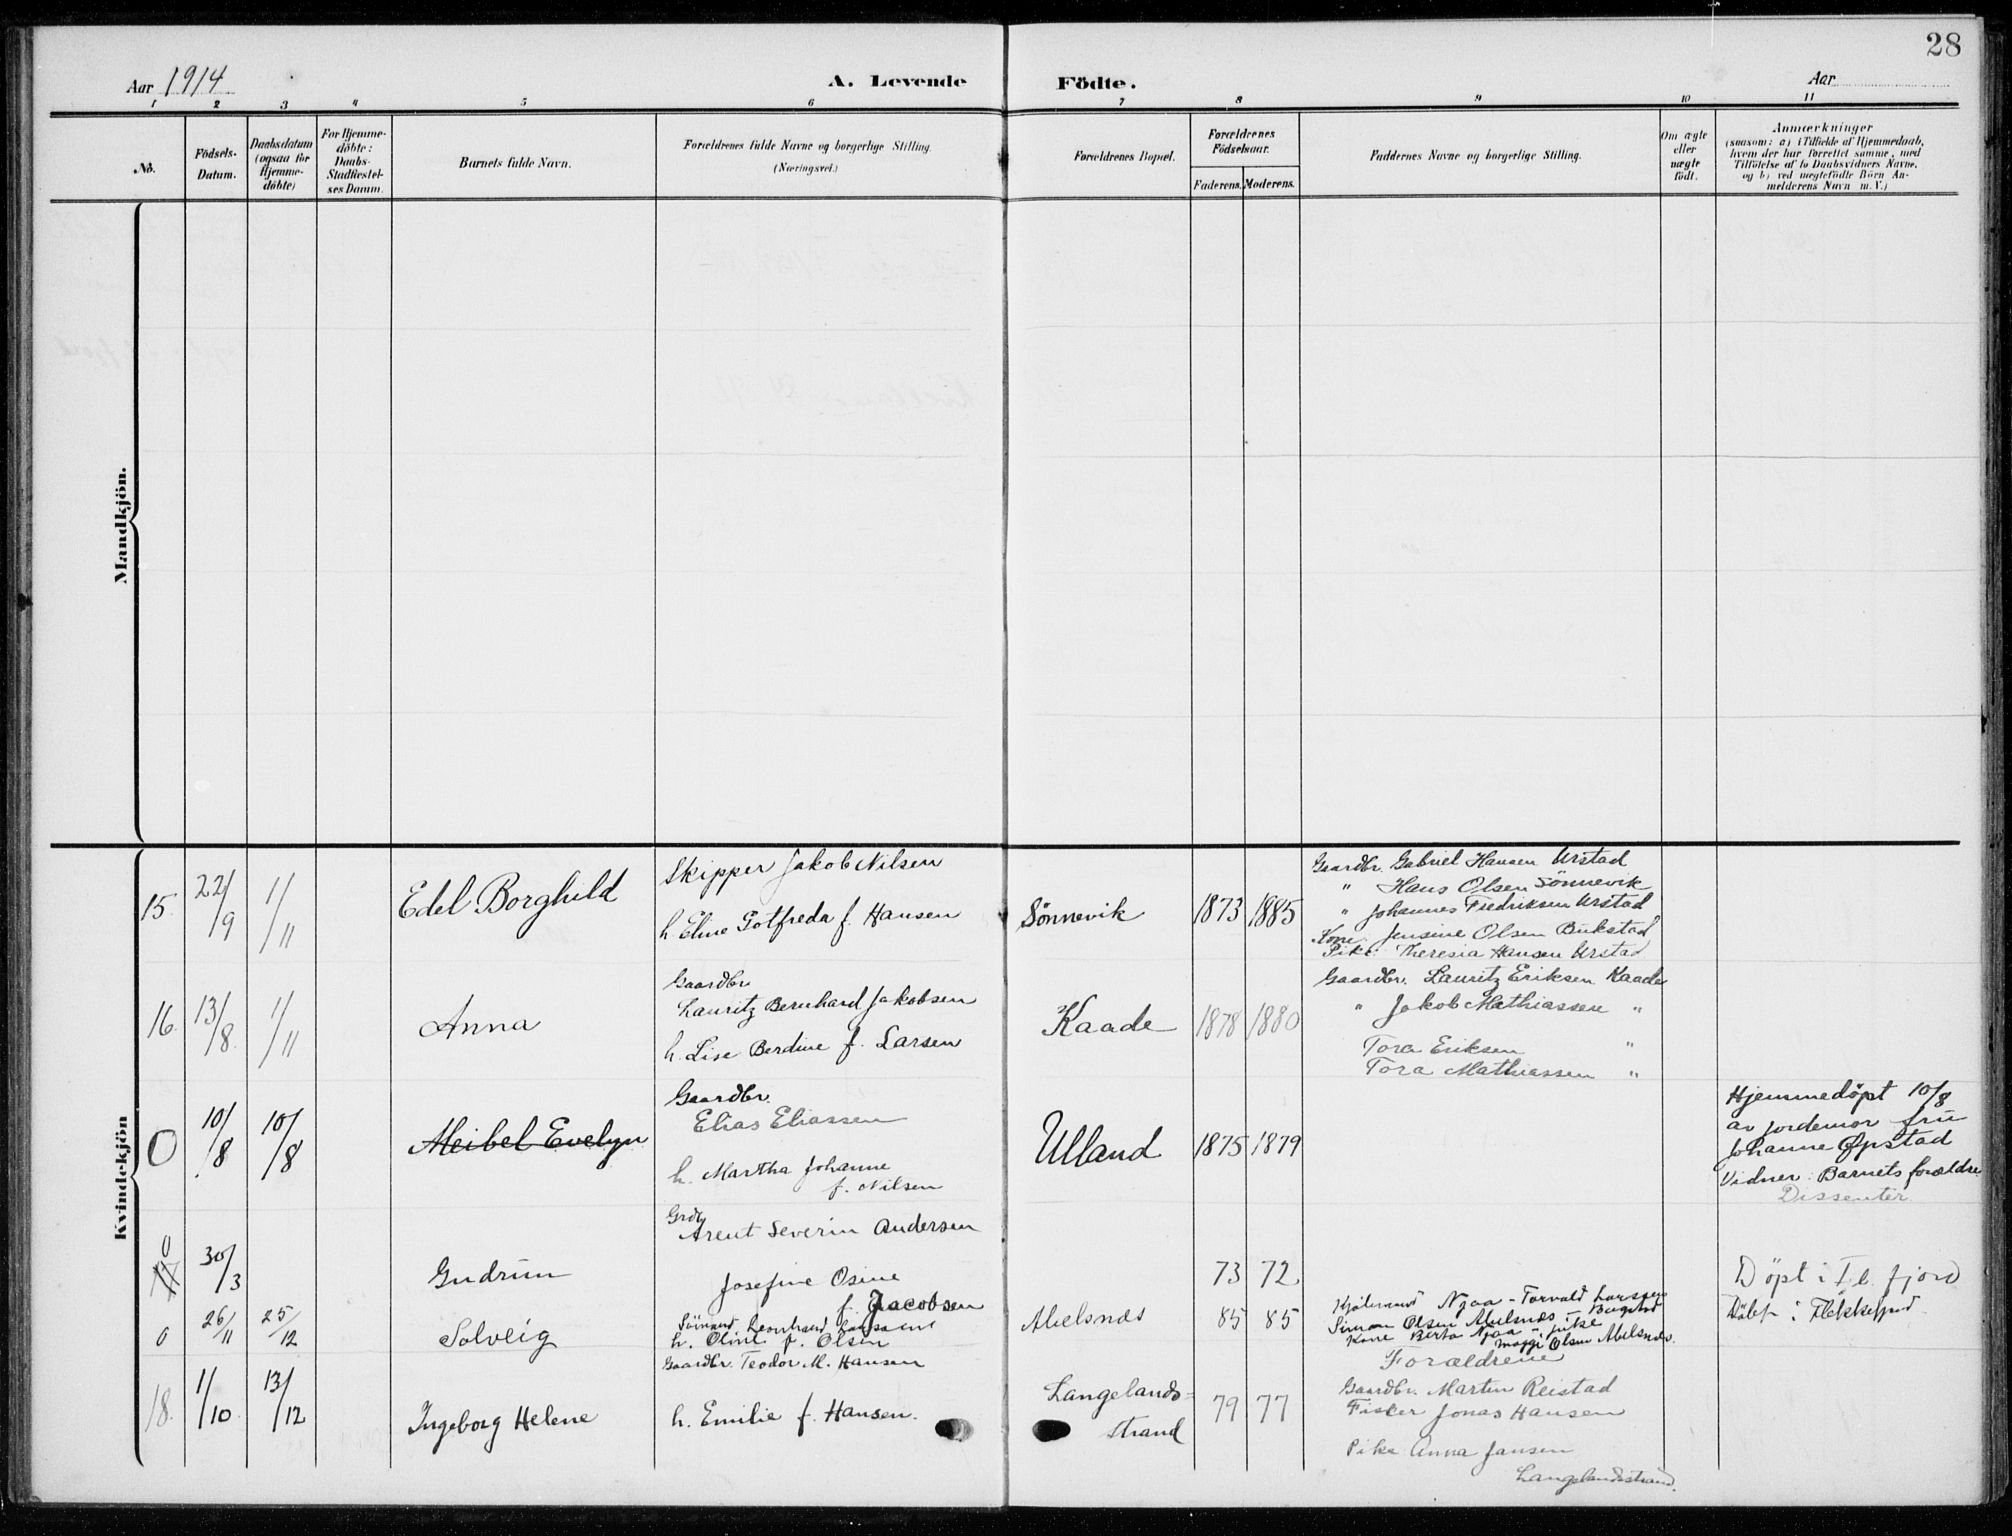 28
Aar 1914
A. Levende Födte.
Aar
1 2 3 4 5 6 7 8 9 10 11
No.
Födsels-Datum.
Daabsdatum (ogsaa for Hjemme-döbte)
For Hjemme-döbte: Daabs-Stadfæstel-ses Datum.
Barnets fulde Navn.
Forældrenes fulde Navne og borgerlige Stilling.
(Næringsvei.)
Forældrenes Bopæl.
Forældrenes Födselsaar.
Faderens. Moderens.
Faddernes Navne og borgerlige Stilling.
Om ægte eller uægte födt.
Anmærkninger
(saasom: a) i Tilfælde af Hjemmedaab,
hvem der har forrettet samme, med
Tilföielse af to Daabsvidners Navne,
og b) ved uegtefödte Börn An-
melderens Navn m. V.)
Mandkjön.
Kvindekjön
15. 22/9 1/11 Edel Borghild
Skipper Jakob Nilsen
h. Eline Gotfreda f. Hansen
Sönnevik 1873 1885
Gaardbr. Gabriel Hansen Urstad
" Hans Olsen Sönnevik
" Johannes Fredriksen Urstad
Kone Jensine Olsen Bukstad
Pike Theresia Hansen Urstad
16. 13/8 1/11 Anna
Gaardbr
Lauritz Bernhard Jakobsen
h. Lise Berdine f. Larsen
Kaade 1878 1880
Gaardbr. Lauritz Eriksen Kaade
" Jakob Mathiassen "
Tora Eriksen "
Tora Mathiassen "
0 10/8 10/8 Meibel Evelyn
Gaardbr.
Elias Eliassen
h. Martha Johanne
f. Nilsen
Ulland 1875 1879
Hjemmedöpt 10/8
av jordemor fru
Johanne Øpstad
Vidner: Barnets forældre
Dissenter
0 17 30/3 Gudrun
Grdb
Arent Severin Andersen
Josefine Osine
f. Jacobsen
73 72
Döpt i Fl. fjord
0 26/11 25/12 Solveig
h. Oline f. Olsen
Abelsnes 85 85
Njaa - Torvald Larssen
Simon Olsen Abelsnes
Kone Berta Njaa - pike
Maggi Olsen Abelsnes.
Forældrene
Döbt i Flekkefjord
18. 1/10 13/12 Ingeborg Helene
Gaardbr. Teodor M. Hansen
h. Emilie f. Hansen.
Langelands=
strand
79 77
Gaardbr. Martin Reistad
Fisker Jonas Hansen
Pike Anna Jansen
Langelandsstrand.